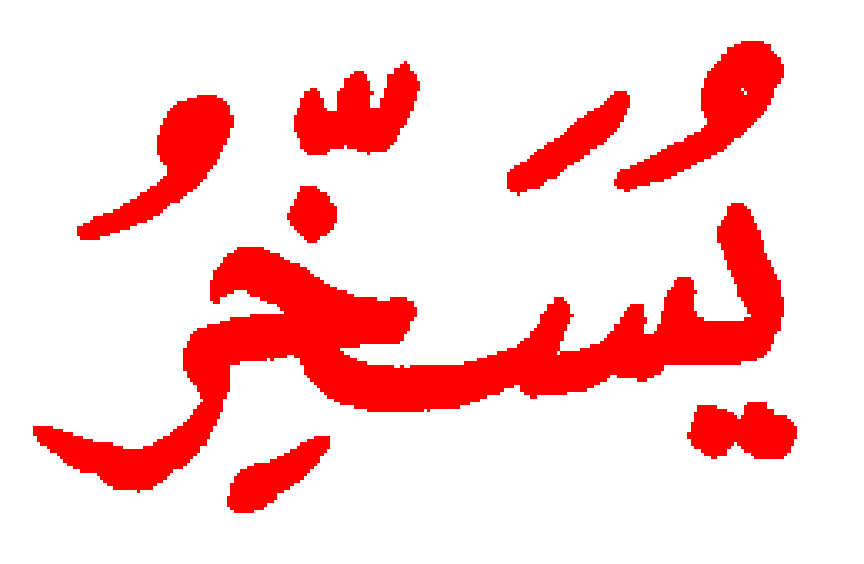 يُسَخِّرُ